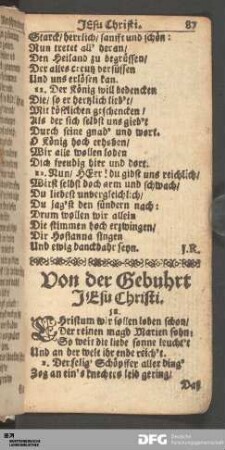 JEsu Christi. 87
Starck/ herrlich/ sanfft und schön:
Nun tretet all' heran/
Den Heiland zu begrüssen/
Der alles creutz versüssen
Und uns erlösen kan.
11. Der König will bedencken
Die/ so er hertzlich lieb't/
Mit köstlichen geschencken/
Als der sich selbst uns gieb't
Durch seine gnad' und wort.
O König hoch erhaben/
Wir alle wollen loben
Dich freudig hier und dort.
12. Nun/ HErr! du gibst uns reichlich/
Wirst selbst doch arm und schwach/
Du liebest unvergleichlich/
Du jag'st den sündern nach:
Drum wollen wir allein
Die stimmen hoch erzwingen/
Dir Hosianna singen
Und ewig danckbahr seyn. J.R.
Von der Gebuhrt
JEsu Christi.
CHristum wir sollen loben schon/
Der reinen magd Marien sohn;
So weit die liebe sonne leucht't
Und an der welt ihr ende reich't.
2. Der selig' Schöpffer aller ding'
Zog an ein's knechtes leib gering/
Daß
DFG Deutsche
Forschungsgemeinschaft